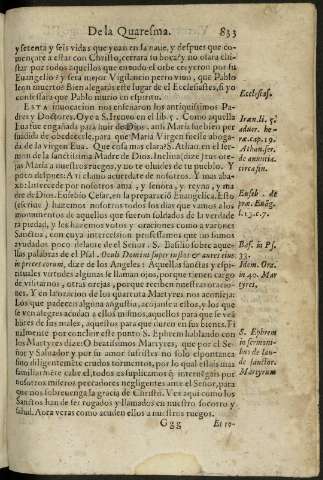 De la Quaresma. 833
y setenta y seis vidas que yuan en la naue, y despues que co-
mençare a estar con Christo, cerrara su boca? y no orara chi-
star por todos aquellos que en todo el orbe creyeron por su
Euangelio? y sera mejor Vigilancio perro viuo, que Pablo
leon muerto? Bien alegarâs este lugar de el Ecclesiastes, si yo
confessara que Pablo murio en espiritu.
Ecclesias.
ESTA inuocacion nos enseñaron los antiquissimos Pa-
dres y Doctores. Oye a S. Ireneo en el lib. 5. Como aquella
Eua fue engañada para huir de Dios, ansi Maria fue bien per
suadida de obedecelle, para que Maria Virgen fuesse aboga-
da de la virgen Eua. Que cosa mas clara? S. Athan. en el ser-
mon de la sanctissima Madre de Dios. Inclina (dize) tus ore-
jas Maria a nuestros ruegos, y no te oluides de tu pueblo. Y
poco despues: A ti clamo acuerdate de nosotros. Y mas aba-
xo: Intercede por nosotros ama, y señora, y reyna, y ma
dre de Dios. Eusebio Cesar, en la preparació Euangelica. Esto
(escriue) hazemos nosotros todos los dias que vamos a los
monumentos de aquellos que fueron soldados de la verdade
ra piedad, y les hazemos votos y oraciones como a varones
Sanctos, con cuya intercession professamos que no somos
ayudados poco delante de el Señor. S. Basilio sobre aque-
llas palabras de el Psal. Oculi Domini super iustos & aures eius
in preces eorum, dize de los Angeles: Aquellas sanctas y espi-
rituales virtudes algunas se llaman ojos, porque tienen cargo
de visitarnos, otras orejas, porque reciben nuestras oracio-
nes. Y en la oracion de los quarenta Martyres nos aconseja:
Los que padeceis alguna angustia, acojanse a ellos, y los que
se ven alegres acudan a ellos mismos, aquellos para que se veã
libres de sus males, aquestos para que duren en sus bienes. Fi
nalmente por concluir este punto S. Ephrem hablando con
los Martyres dize: O beatissimos Martyres, que por el Se-
ñor y Saluador y por su amor sufristes no solo espontanea
sino diligentemẽte crudos tormentos, por lo qual estais mas
familiarmẽte cabe el, todos os suplicamos q̃ intercedais por
nosotros miseros pecadores negligentes ante el Señor, para
que nos sobreuenga la gracia de Christo. Ves aqui como los
Sanctos han de ser rogados y llamados en nuestro socorro y
salud. Aora veras como acuden ellos a nuestros ruegos.
Iran. li. 5.
aduer. he-
ræ. cap. 19.
Athan. ser.
de annucia.
circa fin.
Euseb. de
præ. Euãg.
l. 13. c. 7.
Bas. in Ps.
33.
Idem. Ora.
in 40. Mar
tyres.
S. Ephrem
in sermoni-
bus de lau-
de sanctor.
Martyrum
Ggg Et ro-